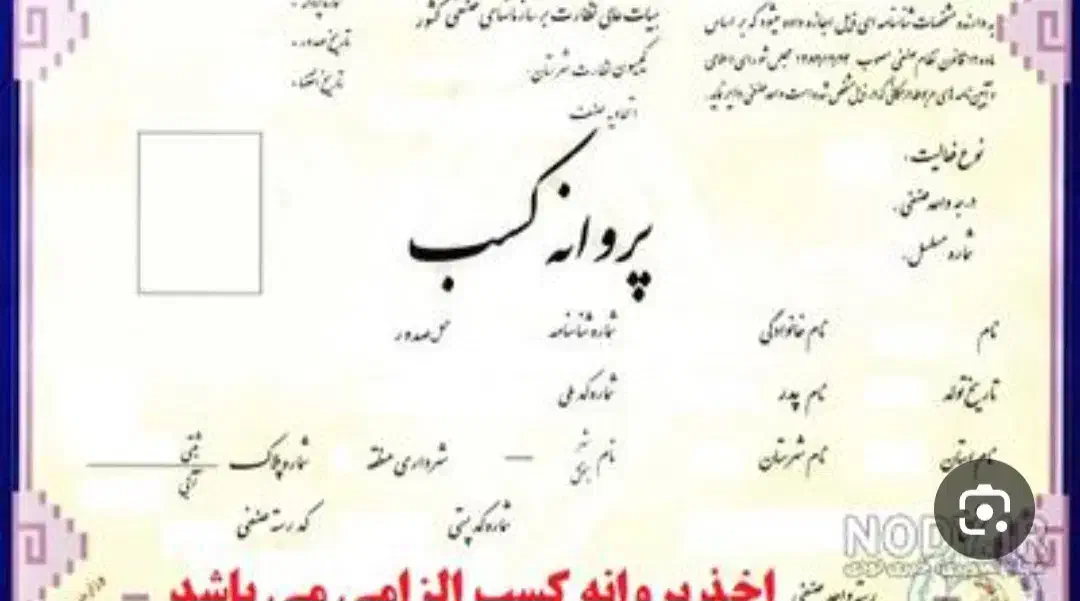 به دارنده مشخصات شناسنامه ای ذیل اجازه داده میشود که بر اساس
ماده ۱۲ قانون نظام صنفی مصوب مجلس شورای اسلامی
و آیین نامه های مربوطه در مکانی که در ذیل مشخص شده است واحد صنفی دایر نماید.
هیات عالی نظارت بر سازمانهای صنفی کشور
کمیسیون نظارت شهرستان:
اتحادیه صنف
تاریخ صدور:
تاریخ انقضاء:
نوع فعالیت:
درجه واحد صنفی:
شماره مسلسل:
پروانه کسب
نام نام خانوادگی شماره شناسنامه محل صدور
تاریخ تولد نام پدر شماره کد ملی
نام استان نام شهرستان نام شهر شهرداری منطقه شماره پلاک ثبتی آبی
شماره کد پستی کد رسته صنفی
اخذ پروانه کسب الزامی می باشد
رسته واحد صنفی